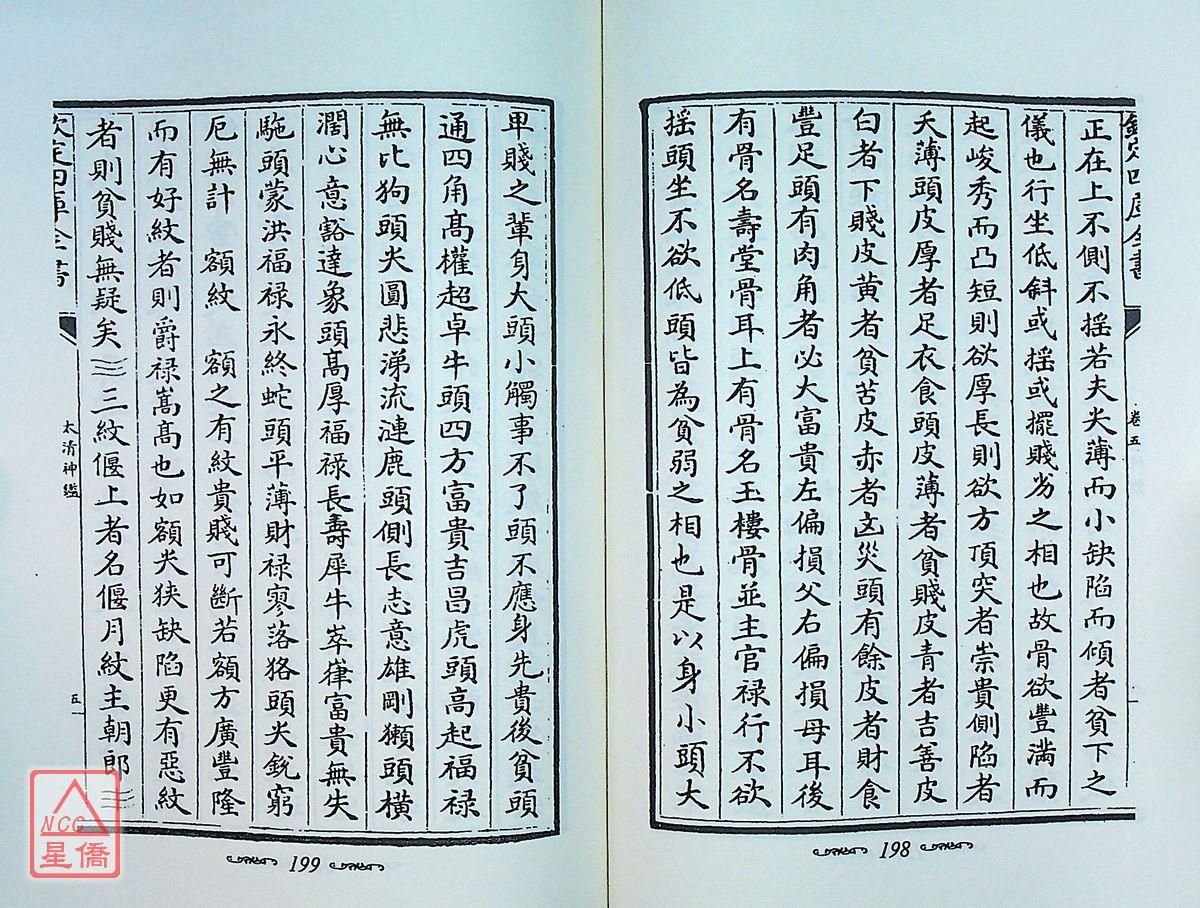 欽定四庫全書
卷五
正在上不側不揺若夫尖薄而小缺陷而傾者貧下之
儀也行坐低斜或揺或擺賤劣之相也故骨欲豐滿而
起峻秀而凸短則欲厚長則欲方頂突者崇貴側陷者
夭薄頭皮厚者足衣食頭皮薄者貧賤皮青者吉善皮
白者下賤皮黄者貧苦皮赤者凶災頭有餘皮者財食
豐足頭有肉角者必大富貴左偏損父右偏損母耳後
有骨名壽堂骨耳上有骨名玉樓骨並主官禄行不欲
揺頭坐不欲低頭皆為貧弱之相也是以身小頭大
198
卑賤之輩身大頭小觸事不了頭不應身先貴後貧頭
通四角髙權超卓牛頭四方富貴吉昌虎頭高起福禄
無比狗頭尖圓悲涕流漣鹿頭側長志意雄剛獺頭横
濶心意豁達象頭髙厚福禄長壽犀牛崒嵂富貴無失
駞頭蒙洪福禄永終蛇頭平薄財禄寥落狢頭尖銳窮
厄無計 額紋 額之有紋貴賤可斷若額方廣豐隆
而有好紋者則爵禄嵩髙也如額尖狹缺陷更有惡紋
者則貧賤無疑矣 三紋偃上者名偃月紋主朝郎
欽定四庫全書
太清神鑑
五
199
NCC
星僑